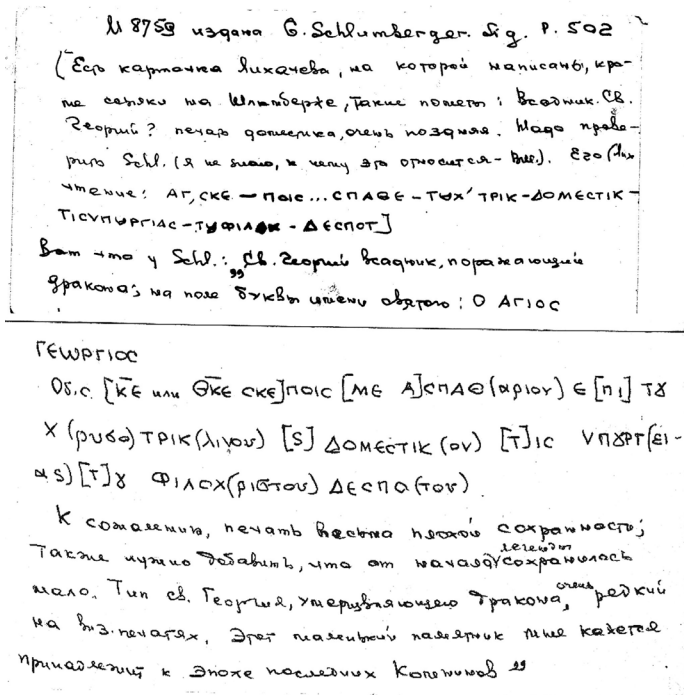 М 8759 издана G. Schlumberger. Sig. P. 502
(Есть карточка Лихачева, на которой написаны, кро-
ме ссылки на Шлумберже, такие пометы: Всадник. Св.
Георгий? печать доместика, очень поздняя. Надо прове-
рить Schl. (я не знаю, к чему это относится - ). Его (Лих
чтение: ΑΓ, СΚΕ — ΠΟΙС... СΠΑΘΕ – ΤȣΧ' ΤΡΙΚ - ΔΟΜΕСΤΙΚ –
ΤΙСVΠȣΡΓΙΑС – ΤȣΦΙΛΟΧ - ΔΕСΠΟΤ]
Вот что у Schl.: „Св. Георгий всадник, поражающий
дракона; на поле буквы имени святого: Ο ΑΓΙΟС
ΓΕωΡΓΙΟС
Об.с. [Κ̅Ε̅ или Θ̅Κ̅Ε̅ СΚΕ]ΠΟΙС [ΜΕ Α]СΠΑΘ(αριον) Ε [πι] Τȣ
Χ(ρυσο) ΤΡΙΚ(λινου) [S] ΔΟΜΕСΤΙΚ(ον) [Τ]ΙС VΠȣΡΓ(ει-
αs) [Τ]ȣ ΦΙΛΟΧ(ριστου) ΔΕСΠΑ(του).
К сожалению, печать весьма плохой сохранности;
также нужно добавить, что от начала легенды сохранилось
мало. Тип св. Георгия, умерщвляющего дракона, очень редкий
на виз. печатях. Этот маленький памятник мне кажется
принадлежит к эпохе последних Комнинов"